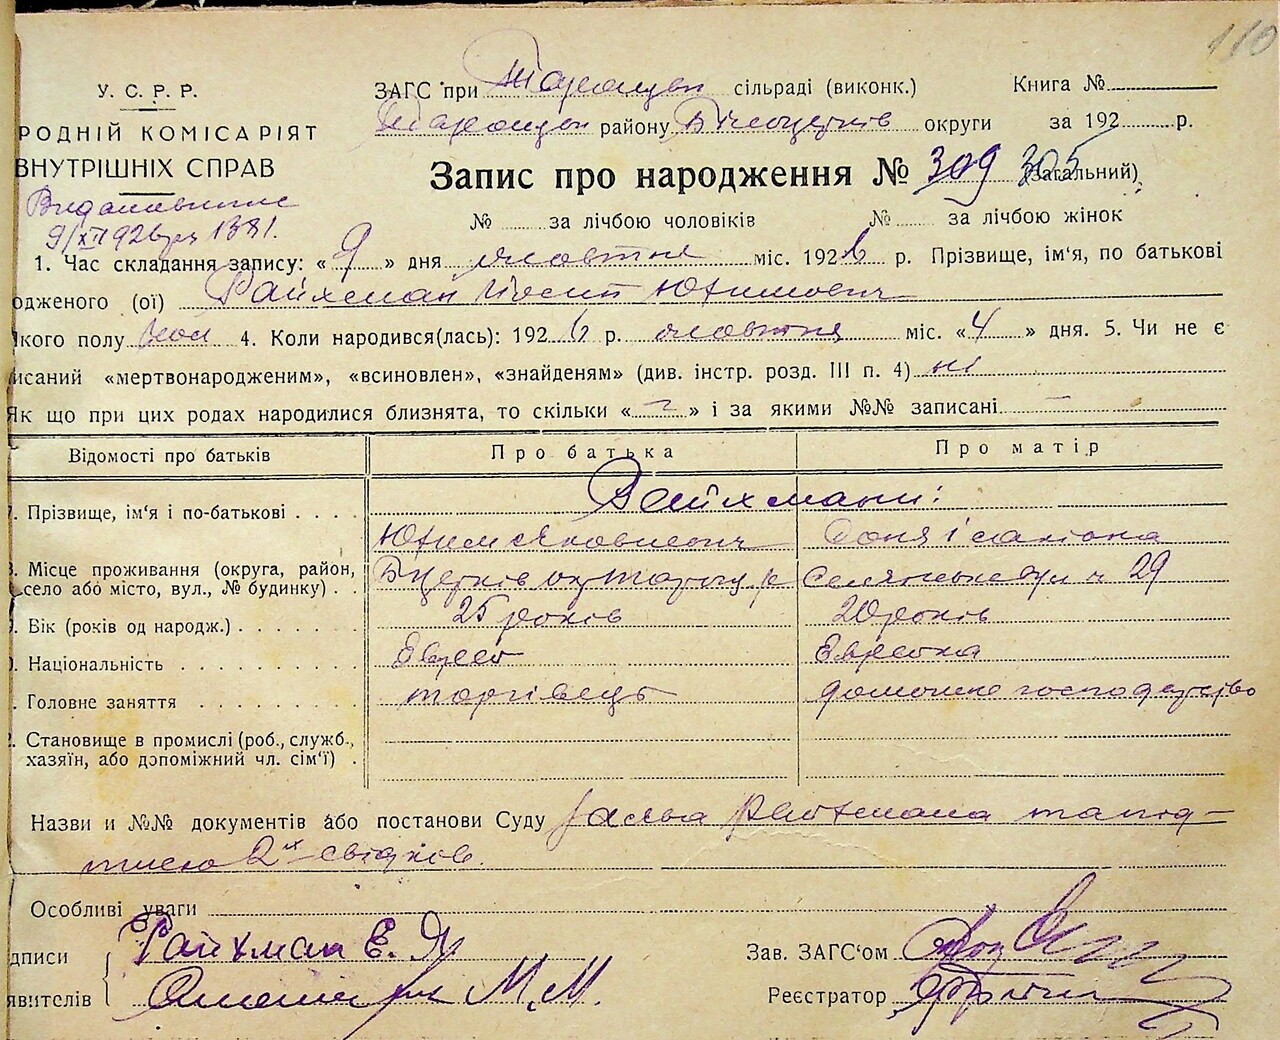 110
У. С. Р. Р.
РОДНІЙ КОМІСАРІЯТ
ВНУТРІШНІХ СПРАВ
ЗАГС при Таращан сільраді (виконк.) Книга №
Таращан району Білоцерків округи за 192 р.
Запис про народження № 309 305 (загальний)
№ за лічбою чоловіків № за лічбою жінок
9/XII 926 1381.
1. Час складання запису: « 9 » дня жовтня міс. 1926 р. Прізвище, ім‘я, по батькові
одженого (ої) Райхман Йосип Юхимович
якого полу чол 4. Коли народився(лась): 1926 р. жовтня міс. «4» дня. 5. Чи не є
исаний «мертвонародженим», «всиновлен», «знайденям» (див. інстр. розд. III п. 4) ні
Як що при цих родах народилися близнята, то скільки « — » і за якими №№ записані —
Відомості про батьків Про батька Про матір
7. Прізвище, ім‘я і по-батькові Райхмани:
Юхим Якович
8. Місце проживання (округа, район, село або місто, вул., № будинку) Бцерків окр Таращ р Селянське вул ч 29
9. Вік (років од народж.) 25 років 20 років
Національність Еврей Еврейка
Головне заняття торгівець домашнє господарство
Становище в промислі (роб., служб., хазяїн, або допоміжний чл. сім‘ї)
Назви и №№ документів або постанови Суду Заява Райхмана та під-
писю 2х свідків.
Особливі уваги
дписи Райхман Е. Я. Зав. ЗАГС‘ом
явителів М. М. Реєстратор